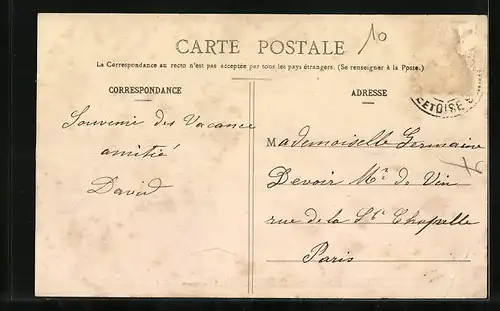 10
CARTE POSTALE
La Correspondance au recto n'est pas acceptée par tous les pays étrangers. (Se renseigner à la Poste.)
CORRESPONDANCE
Souvenir des Vacance
amitié
David
ADRESSE
Mademoiselle Germaine
Devoir Md de Vin
rue de la Ste Chapelle
Paris